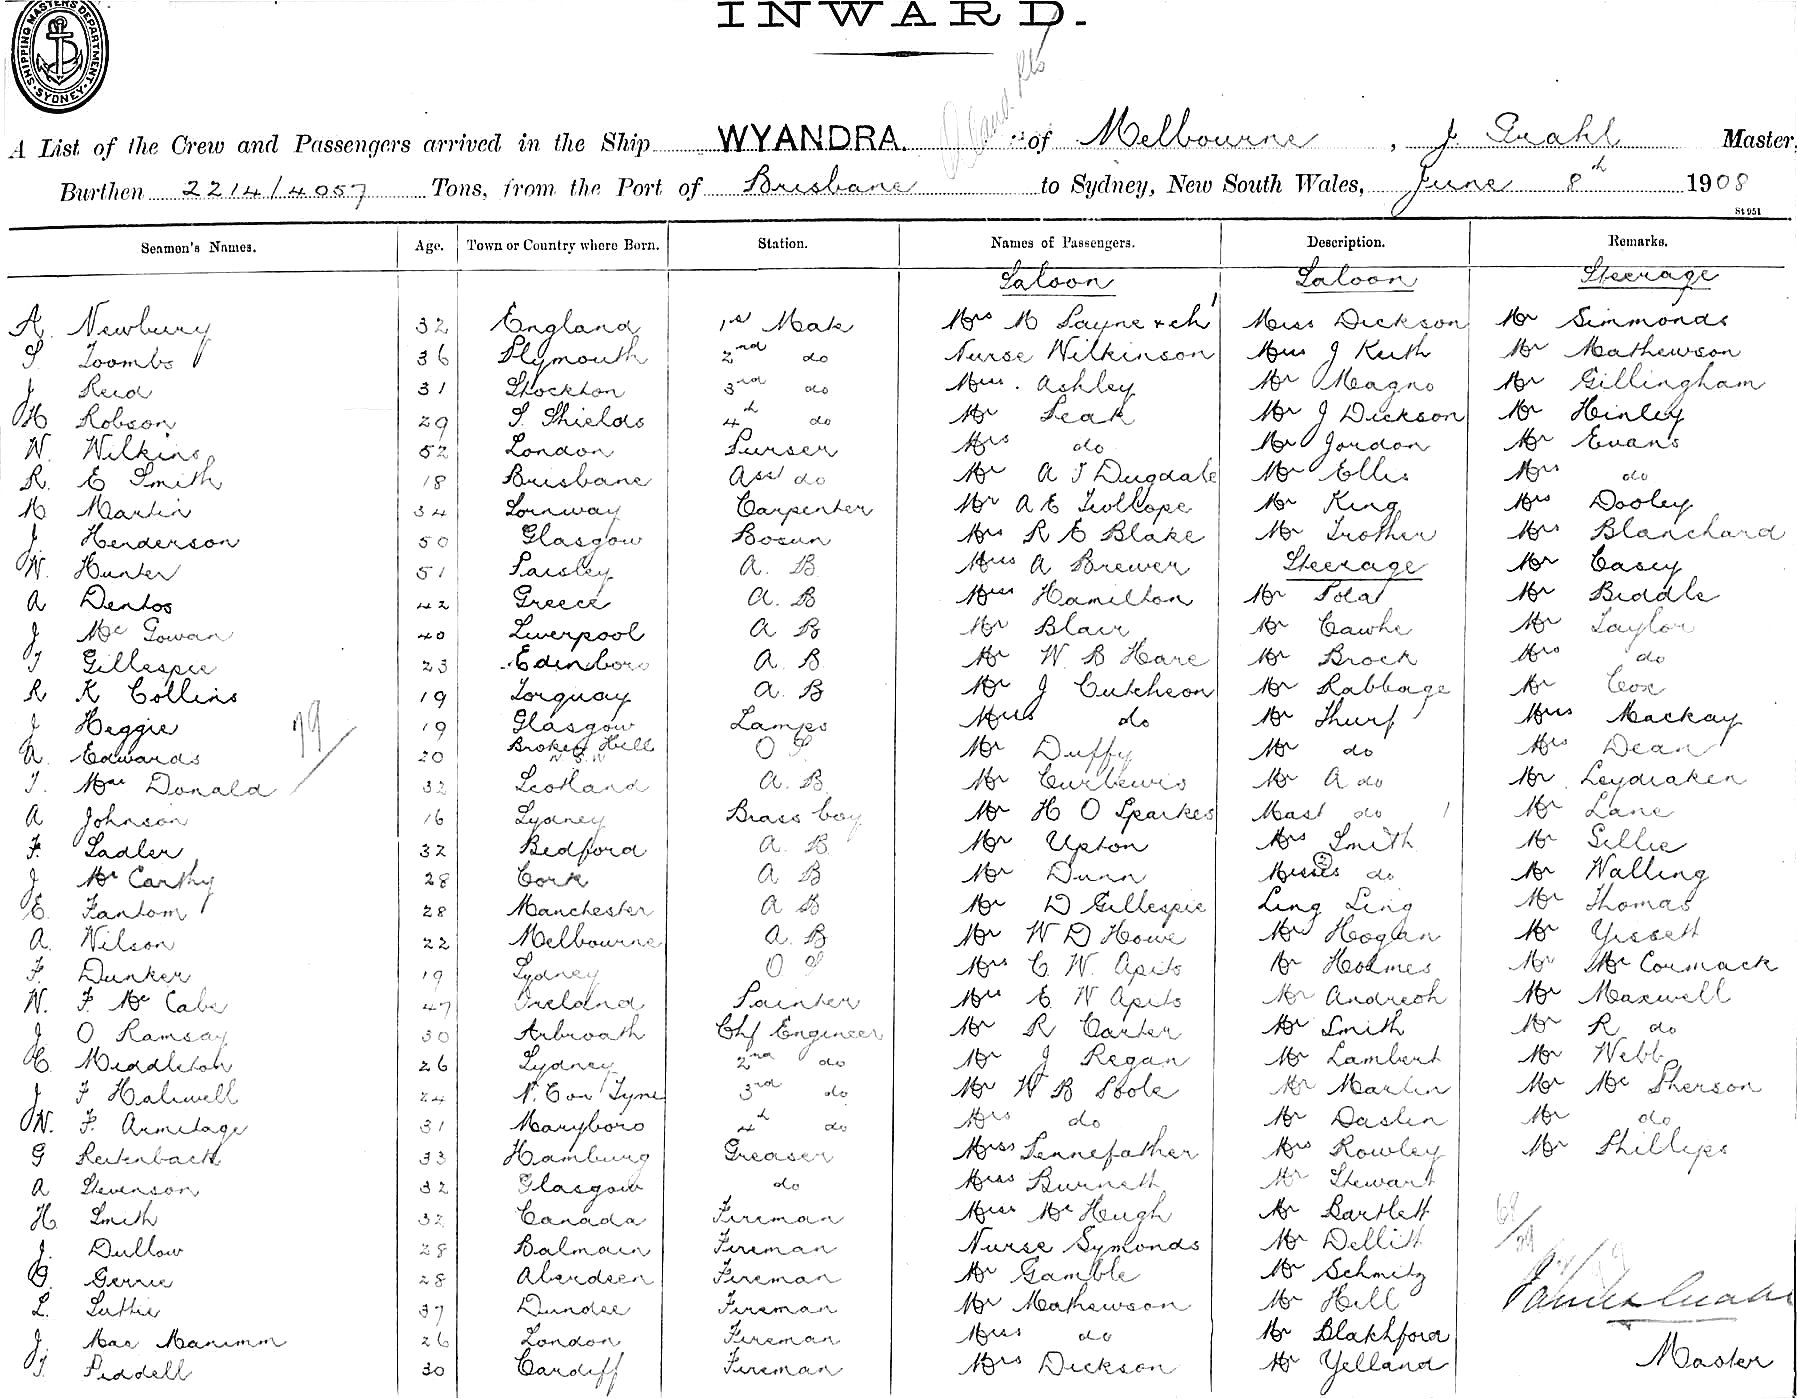 SHIPPING MASTERS DEPARTMENT
SYDNEY
INWARD.
A List of the Crew and Passengers arrived in the Ship WYANDRA. of Melbourne, J. Grahl Master,
Burthen 2214/4057 Tons, from the Port of Brisbane to Sydney, New South Wales, June 8th 1908
St 951
Seamen's Names. Age. Town or Country where Born. Station. Names of Passengers. Description. Remarks.
Saloon Saloon Steerage
A. Newbury 32 England 1st Mate Mrs M Payne & ch 1 Miss Dickson Mr Simmonds
S. Toombs 36 Plymouth 2nd do Nurse Wilkinson Miss J Keith Mr Mathewson
J. Reid 31 Stockton 3rd do Miss. Ashley Mr Magno Mr Gillingham
H Robson 29 S. Shields 4th do Mr Leak Mr J Dickson Mr Hinley
W. Wilkins 52 London Purser Mrs do Mr Jordon Mr Evans
R. E Smith 18 Brisbane Asst do Mr A J Dugdale Mr Ellis Mrs do
M Martin 34 Carpenter Mr A E Trollope Mr King Mrs Dooley
J. Henderson 50 Glasgow Bosun Mrs R E Blake Mr Trother Mrs Blanchard
W. Hunter 51 Paisley A. B Miss A Brewer Steerage Mr Casey
A Dentos 42 Greece A. B Miss Hamilton Mr Pola Mr Biddle
J. McGowan 40 Liverpool A B Mr Blair Mr Cawhe Mr Taylor
T Gillespie 23 Edinboro A. B Mr W. B Hare Mr Brock Mrs do
R K Collins 19 Torquay A. B Mr J Cutcheon Mr Rabbage Mr Cox
J Heggie 19 Glasgow Lamps Miss do Mr Thurf Miss Mackay
79
A. Edwards 20 Broken Hill N. S. W O S Mr Duffy Mr do Mrs Dean
T. MacDonald 32 Scotland A. B. Mr Curlewis Mr A do Mr Leydraken
A Johnson 16 Sydney Brass boy Mr H O Sparkes Mast do 1 Mr Lane
F. Sadler 32 Bedford A. B Mr Upton Mrs Smith Mr Gillie
J McCarthy 28 Cork A B Mr Dunn Misses 2 do Mr Walling
E. Fantom 28 Manchester A B Mr D Gillespie Ling Ling Mr Thomas
A. Wilson 22 Melbourne A. B Mr W D Howe Mr Hogan Mr Yissett
F. Dunker 19 Sydney O S Mrs C. W. Apits Mr Holmes Mr McCormack
W. F. McCabe 47 Ireland Painter Miss E W Apits Mr Andreoh Mr Maxwell
J O Ramsay 50 Arbroath Chf Engineer Mr R Carter Mr Smith Mr R do
C. Middleton 26 Sydney 2nd do Mr J Regan Mr Lambert Mr Webb
J F Haliwell 24 N. C on Tyne 3rd do Mr W B Poole Mr Martin Mr McPherson
W. F. Armitage 31 Maryboro 4th do Mrs do Mr Daslin Mr do
G Reitenbach 33 Hamburg Greaser Miss Pennefather Mrs Rowley Mr Phillips
A Stevenson 32 Glasgow do Miss Burnett Mr Stewart
H. Smith 32 Canada Fireman Miss McHugh Mr Bartlett
J. Dullow 28 Balmain Fireman Nurse Symonds Mr Dellitt
G. Gerrie 28 Aberdeen Fireman Mr Gamble Mr Schmitz
L. Luttie 37 Dundee Fireman Mr Mathewson Mr Hill
J. MacManimm 26 London Fireman Miss do Mr Blakhford
T. Piddell 30 Cardiff Fireman Mrs Dickson Mr Yelland Master